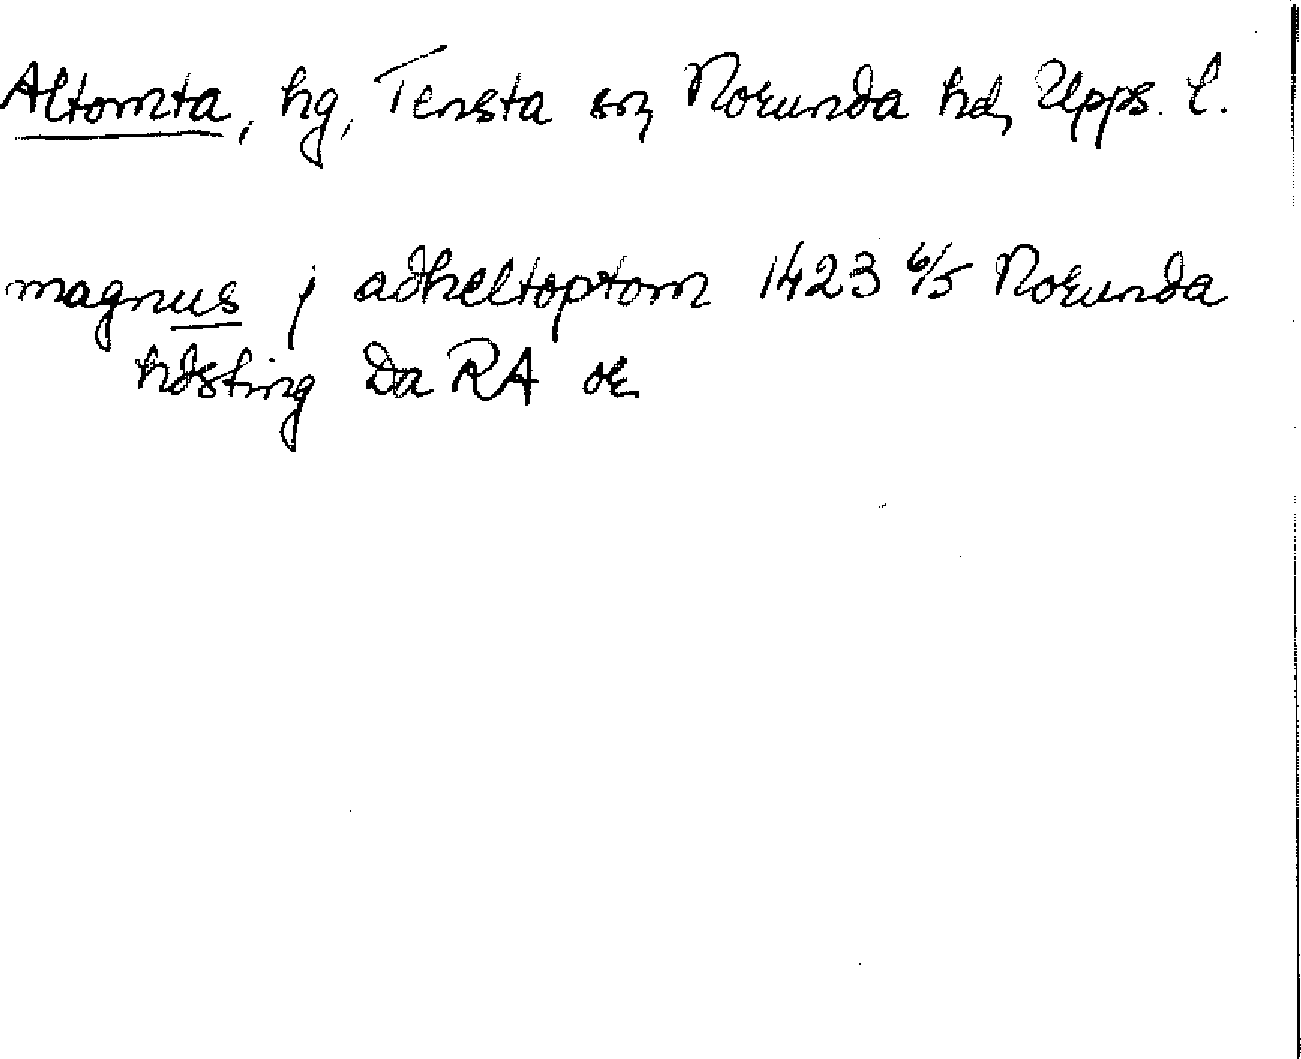 Altomta, hg, Tensta sn, Norunda hd, Upps. l.
magnus j adheltoptom 1423 6/5 Norunda
hdsting Da RA or